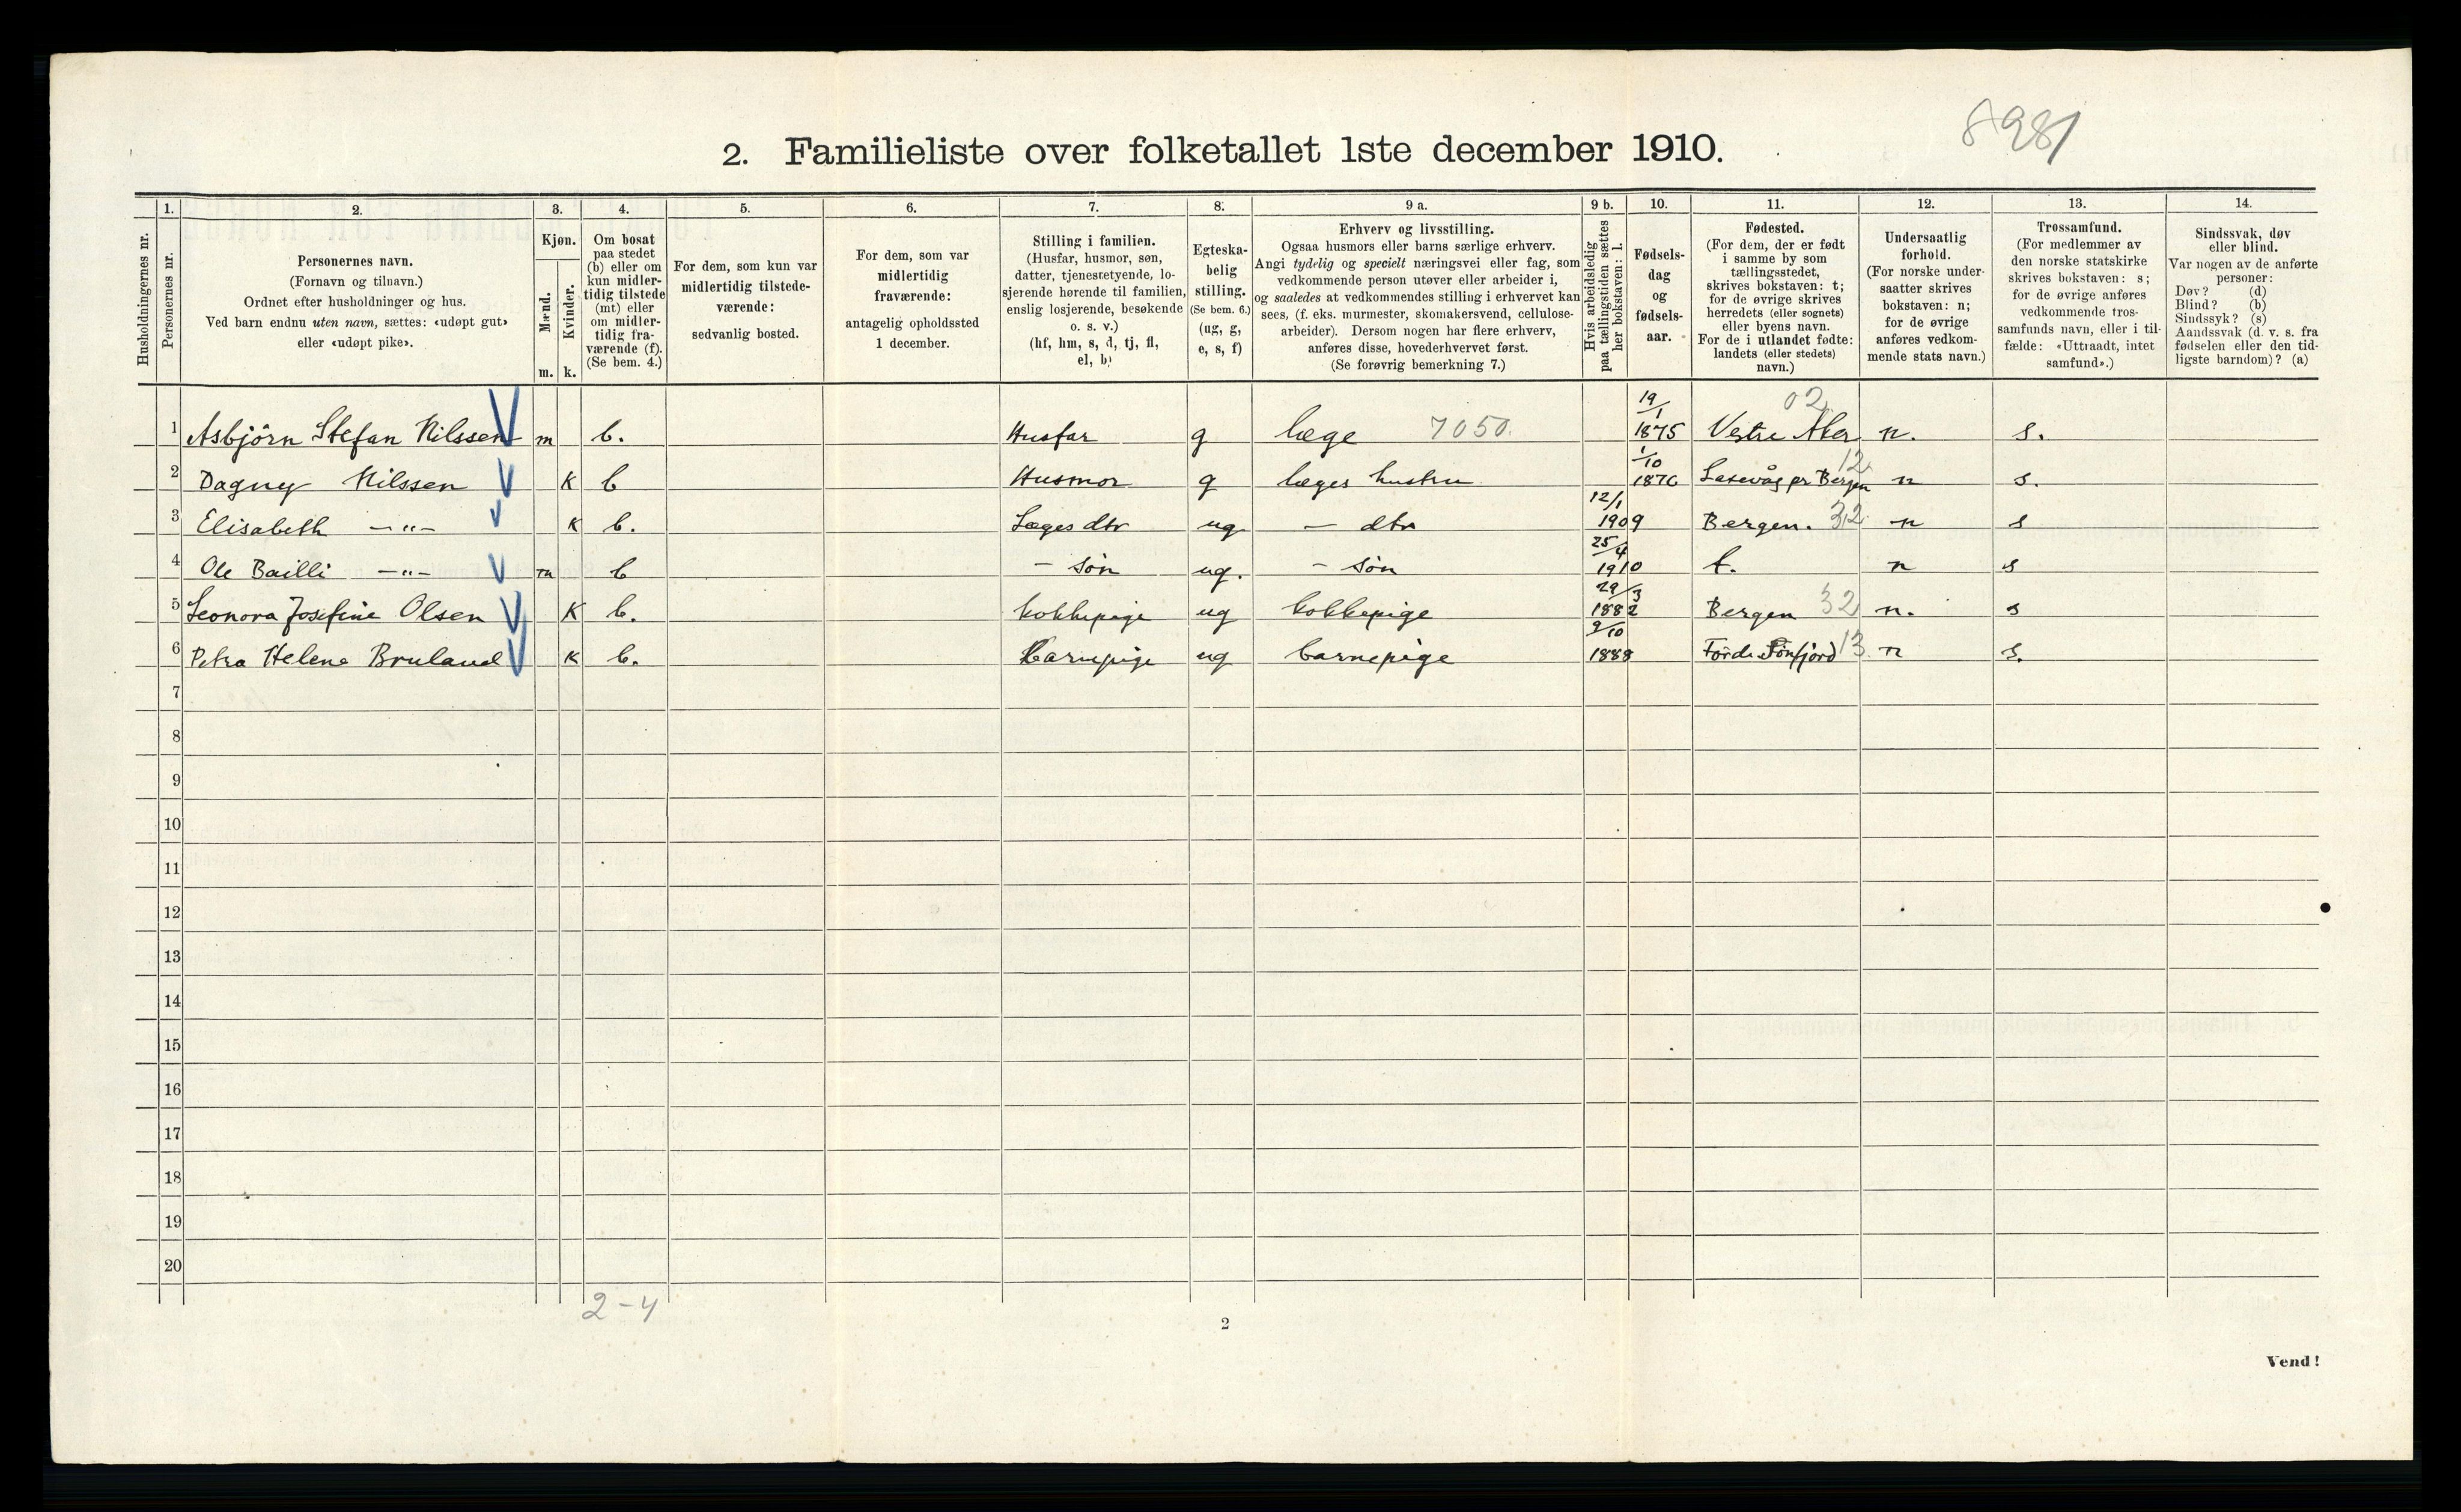 8981
2. Familieliste over folketallet 1ste december 1910.
1. 2. 3. 4. 5. 6. 7. 8. 9 a. 9 b. 10. 11. 12. 13. 14.
Husholdningernes nr.
Personernes nr.
Personernes navn.
(Fornavn og tilnavn.)
Ordnet efter husholdninger og hus.
Ved barn endnu uten navn, sættes: «udøpt gut»
eller «udøpt pike».
Kjøn.
Mænd.
Kvinder.
m. k.
Om bosat
paa stedet
(b) eller om
kun midler-
tidig tilstede
(mt) eller
om midler-
tidig fra-
værende (f).
(Se bem. 4.)
For dem, som kun var
midlertidig tilstede-
værende:
sedvanlig bosted.
For dem, som var
midlertidig
fraværende:
antagelig opholdssted
1 december.
Stilling i familien.
(Husfar, husmor, søn,
datter, tjenestetyende, lo-
sjerende hørende til familien,
enslig losjerende, besøkende
o. s. v.)
(hf, hm, s, d, tj, fl,
el, b)
Egteska-
belig
stilling.
(Se bem. 6.)
(ug, g,
e, s, f)
Erhverv og livsstilling.
Ogsaa husmors eller barns særlige erhverv.
Angi tydelig og specielt næringsvei eller fag, som
vedkommende person utøver eller arbeider i,
og saaledes at vedkommendes stilling i erhvervet kan
sees, (f. eks. murmester, skomakersvend, cellulose-
arbeider). Dersom nogen har flere erhverv,
anføres disse, hovederhvervet først.
(Se forøvrig bemerkning 7.)
Hvis arbeidsledig
paa tællingstiden sættes
her bokstaven: l.
Fødsels-
dag
og
fødsels-
aar.
Fødested.
(For dem, der er født
i samme by som
tællingsstedet,
skrives bokstaven: t;
for de øvrige skrives
herredets (eller sognets)
eller byens navn.
For de i utlandet fødte:
landets (eller stedets)
navn.)
Undersaatlig
forhold.
(For norske under-
saatter skrives
bokstaven: n;
for de øvrige
anføres vedkom-
mende stats navn.)
Trossamfund.
(For medlemmer av
den norske statskirke
skrives bokstaven: s;
for de øvrige anføres
vedkommende tros-
samfunds navn, eller i til-
fælde: «Uttraadt, intet
samfund».)
Sindssvak, døv
eller blind.
Var nogen av de anførte
personer:
Døv? (d)
Blind? (b)
Sindssyk? (s)
Aandssvak (d. v. s. fra
fødselen eller den tid-
ligste barndom)? (a)
1 Asbjörn Stefan Nilssen m b. Husfar g læge 7050. 19/1 1875 Vestre Aker 02 n. s.
2 Dagny Nilssen K b Husmor g læges hustru 1/10 1876 Laxevåg pr Bergen 12 n s.
3 Elisabeth —"— K b. Læges dtr ug — dtr 12/1 1909 Bergen. 32 n s
4 Ole Bailli —"— m b — sön ug. — sön 25/4 1910 t. n s
5 Leonora Josefine Olsen K b. kokkepige ug kokkepige 29/3 1882 Bergen 32 n. s
6 Petra Helene Bruland K b. barnepige ug barnepige 9/10 1888 Förde Sönfjord 13 n s.
7
8
9
10
11
12
13
14
15
16
17
18
19
20
2-4
2
Vend!